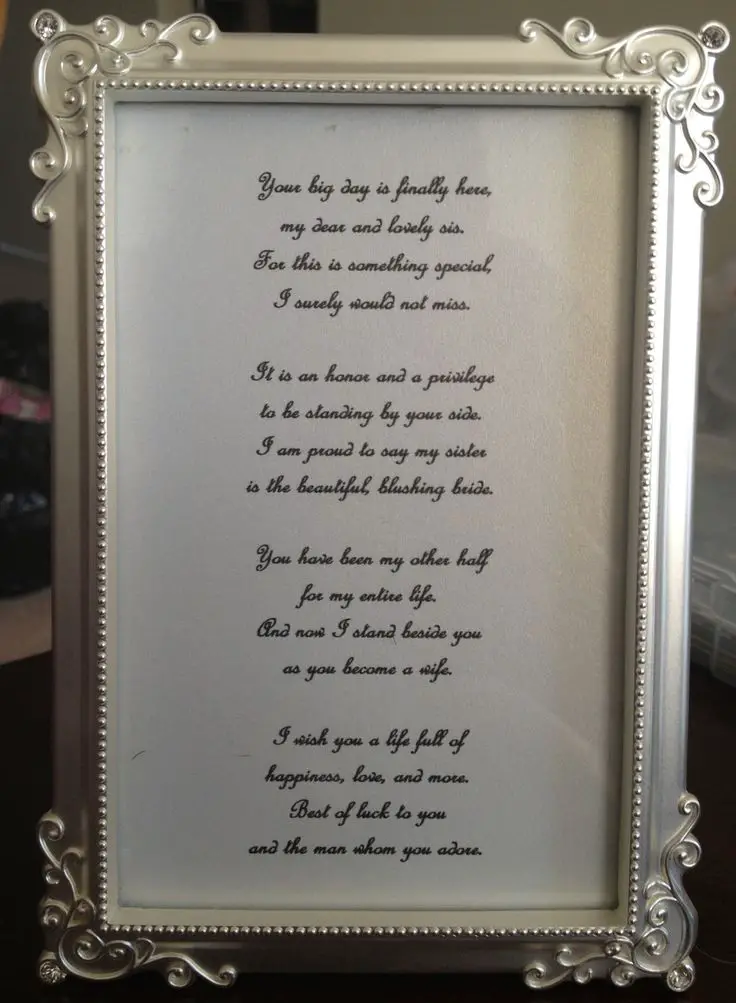 Your big day is finally here,
my dear and lovely sis.
For this is something special,
I surely would not miss.
It is an honor and a privilege
to be standing by your side.
I am proud to say my sister
is the beautiful, blushing bride.
You have been my other half
for my entire life.
And now I stand beside you
as you become a wife.
I wish you a life full of
happiness, love, and more.
Best of luck to you
and the man whom you adore.